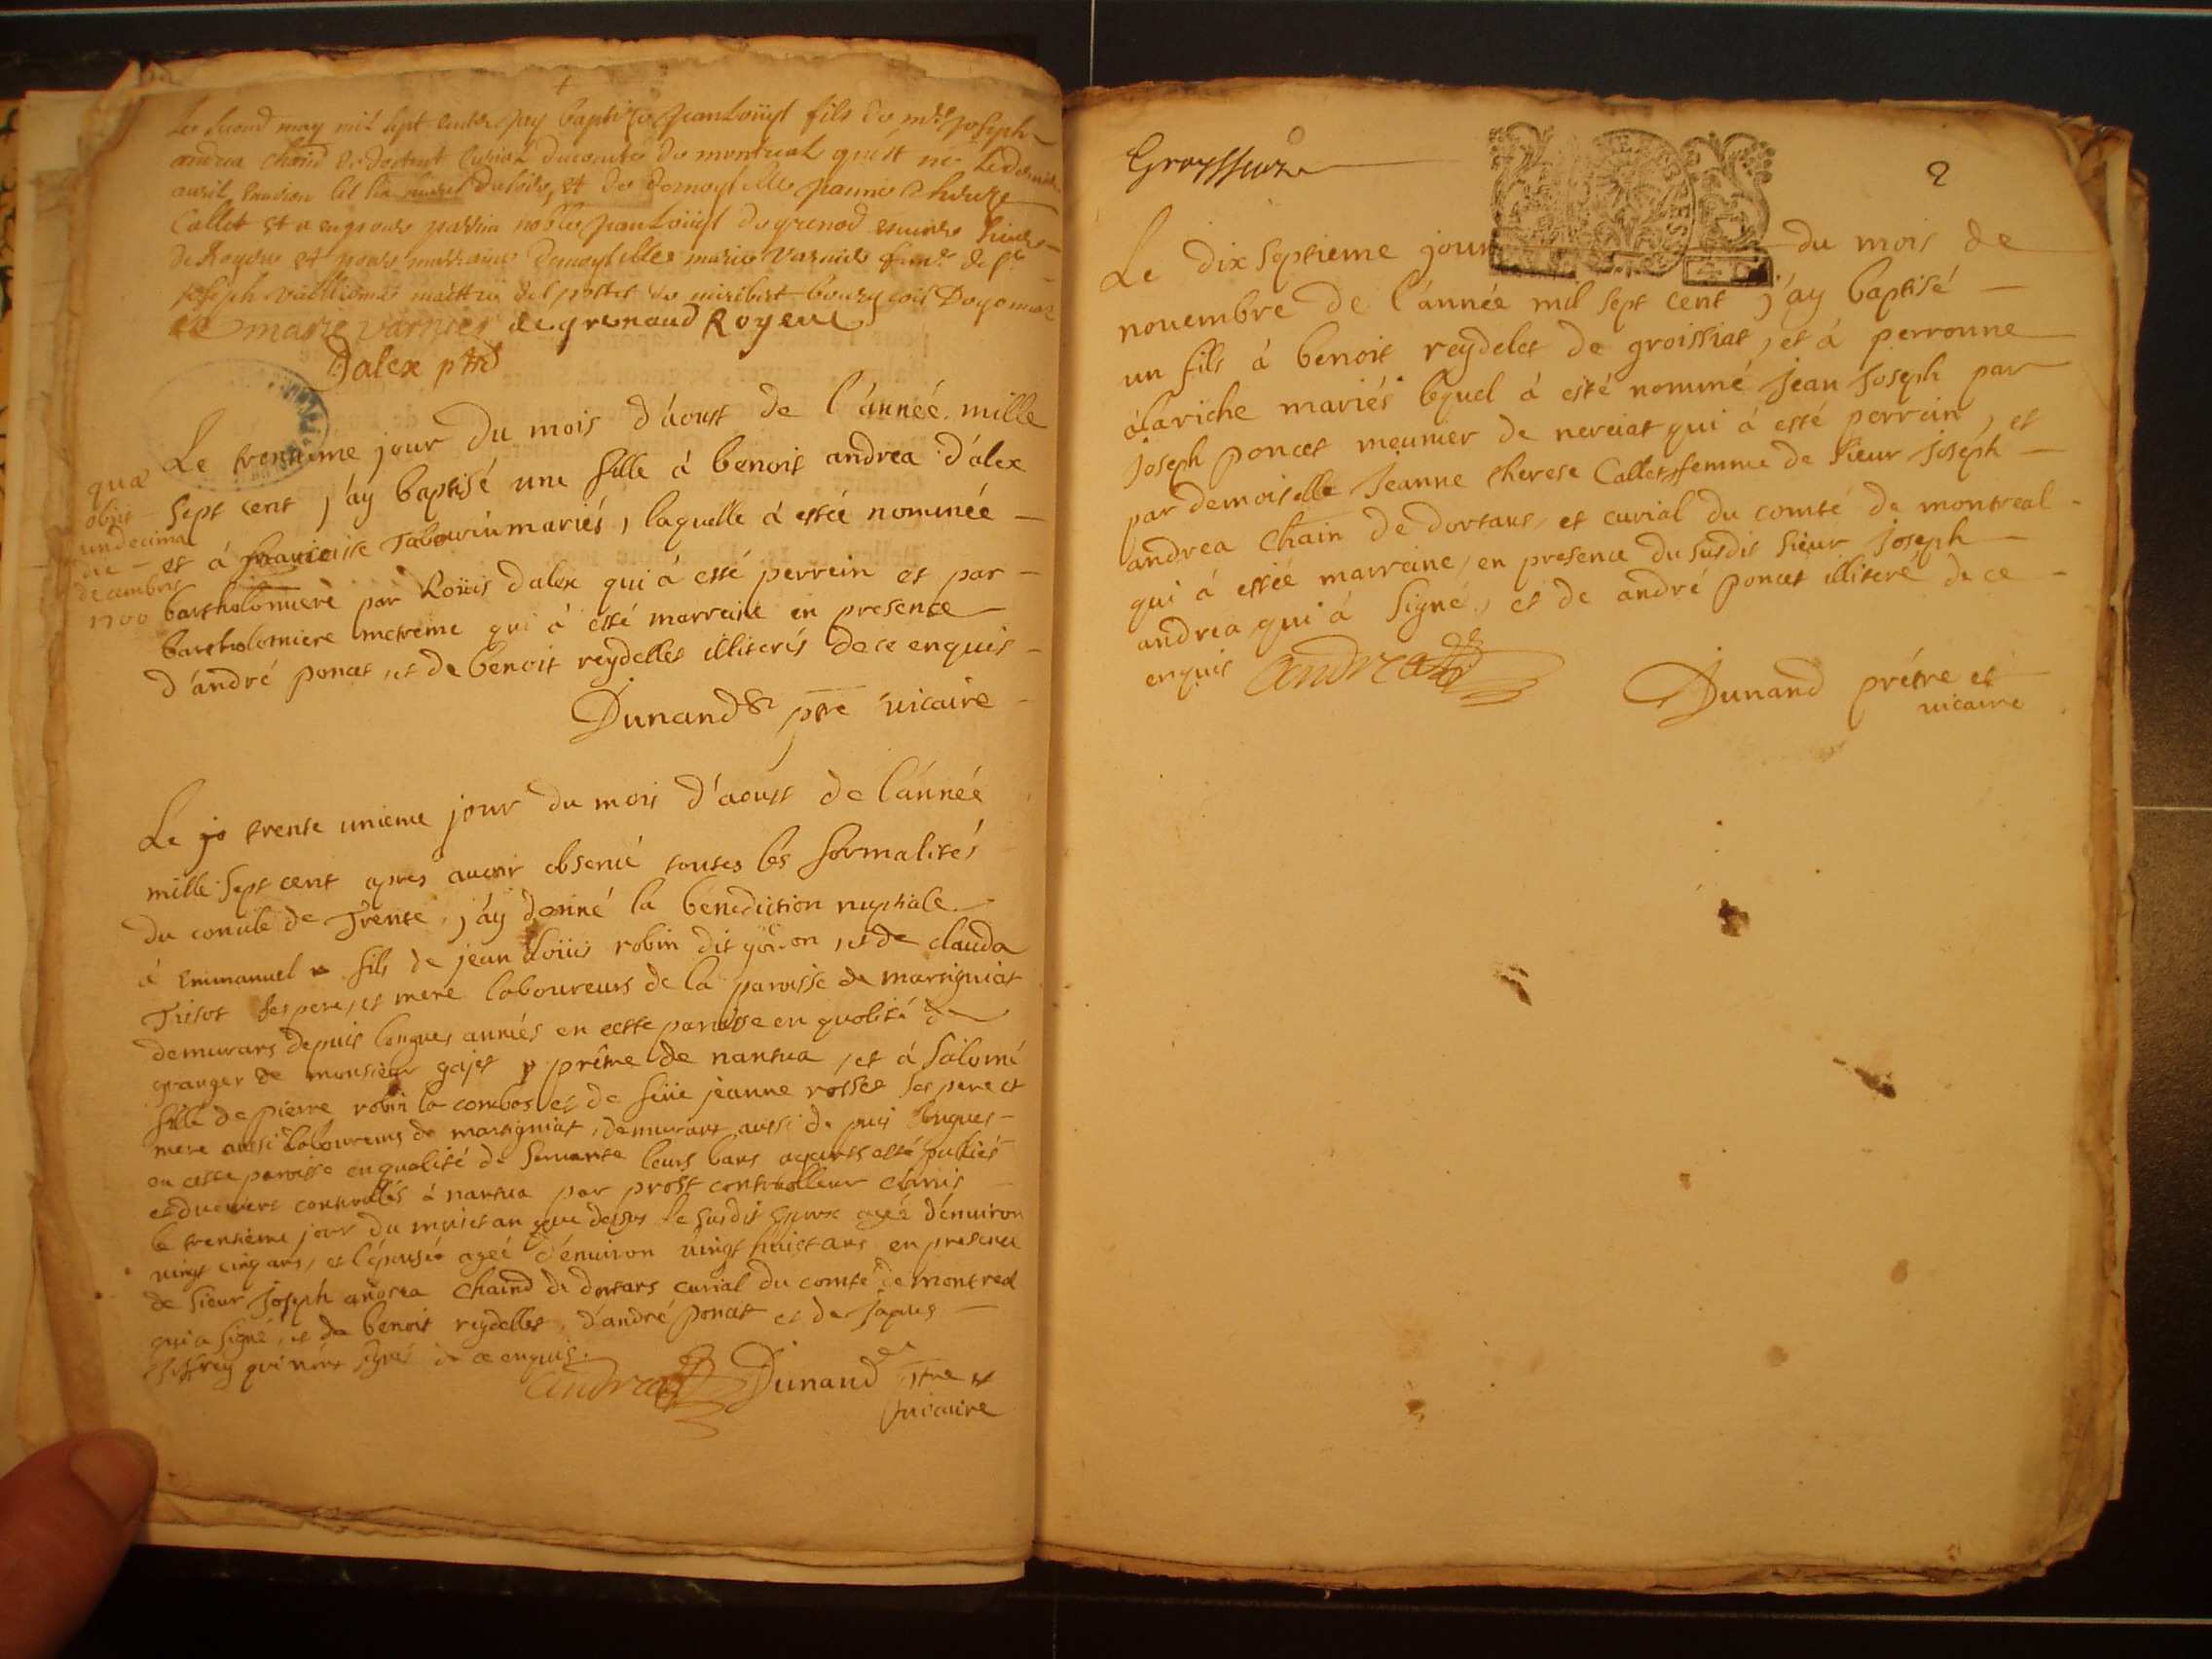 Le second may mil sept cents jay baptize Jean Louys fils de mr Joseph
andrea chaind de dortent curial du comté de montreal qui est né le dernier
auril enuiron les six heures du soir, et de demoyselle Jeanne therese
Callet et a eu pour parrin noble Jean Louys de grenod escuier sieur
de Royere et pour marraine demoyselle marie varnier feme de sr
Joseph maittre des postes de miribert
marie varnier de grenaud Royere
Dalex ptre
Le trentieme jour du mois d'áoust de l'année mille
sept cent j'áy baptisé une fille á benoit andrea d'alex
et á francoise Tabourin mariés, laquelle á estée nommée
bartholomiere par Loüis dalex qui á esté perrein et par
bartholomiere metreme qui á esté marraine en presence
d'andré poncet, et de benoit reydellet illiterés de ce enquis
Dunand ptre uicaire
quæ
obiit
undecima
die
decembris
1700
Le jo trente unieme jour du mois d'aoust de l'ánnée
mille sept cent apres auoir obserué toutes les formalités
du concile de Trente, j'áy donné la bénediction nuptiale
á Emmanuel fils de jean Loüis robin dit et de clauda
Tissot ses pere, et mere laboureurs de la paroisse de martigniat
demurans depuis longues années en cette paroisse en qualité de
granger de monsieur gajet prêtre de nantua, et á salomé
fille de pierre robin la combos et de feüe jeanne rosset ses pere et
mere aussi laboureurs de martigniat, demurant aussi de puis longues
en cette paroisse en qualité de seruante leurs bans ayants esté publiés
et duement controllés á nantua par prost controlleur
le trentieme jour du mois et an que dessus le susdit epoux agé d'énuiron
uingt cinq ans, et l'épousée ageé d'énuiron uingt huict ans en presence
de sieur Joseph andrea chaind de dortans curial du comté de montreal
qui a signé, et de benoit reydellet, d'andré poncet et de Jaques
qui n'ont signé de ce enquis.
andrea Dunand ptre et
uicaire
Groyssiaz
2
Le dix septieme jour du mois de
nouembre de l'ánnée mil sept cent j'áy baptisé
un fils á benoit reydelet de groissiat, et á perronne
álariche mariés lequel á esté nommé Jean Joseph par
joseph poncet meunier de nerciat qui á esté perrein, et
par demoiselle Jeanne therese Callet femme de sieur Joseph
andrea chain de dortans, et curial du comté de montreal
qui á estée marraine, en presence du susdit sieur Joseph
andrea qui á signé, et de andré poncet illiteré de ce
enquis andrea
Dunand prétre et
uicaire